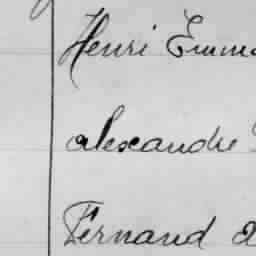 Henri Emma
alexandre
Fernand